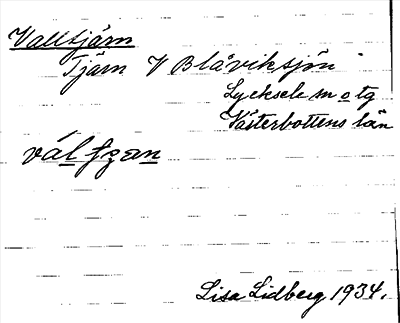 Valltjärn
Tjärn V Blåviksjön
Lycksele m o tg
Västerbottens län
Lisa Lidberg 1934.